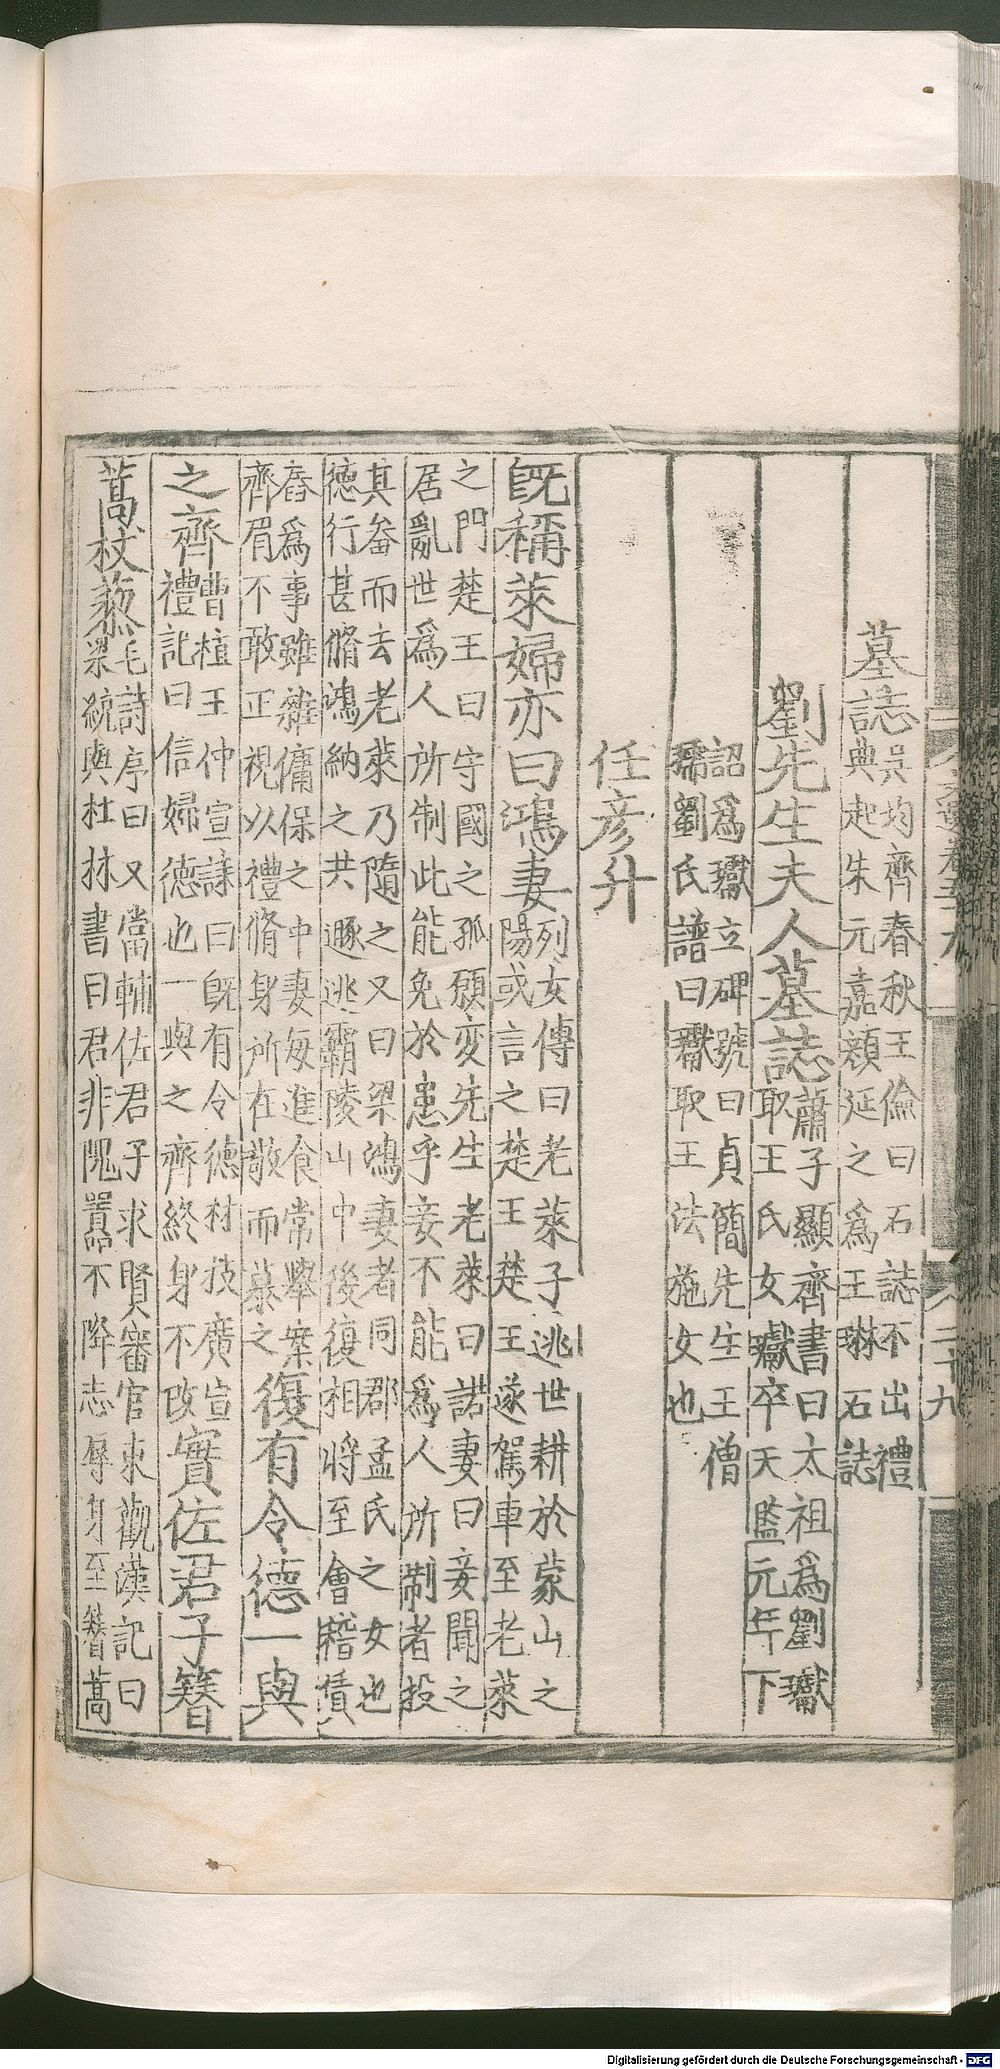 墓誌吳均齊春秋王儉曰石誌不出禮
典起朱元嘉顔延之爲王琳石誌
劉先生夫人墓誌蕭子顯齊書曰太祖爲劉瓛
取王氏女瓛卒天監元年下
詔爲瓛立碑號曰貞簡先生王僧
孺劉氏譜曰瓛取王法施女也
任彦升
旣稱萊婦亦曰鴻妻列女傳曰老萊子逃世耕於蒙山之
陽或言之楚王楚王遂駕車至老萊
之門楚王曰守國之孤願変先生老萊曰諾妻曰妾聞之
居亂世爲人所制此能免於患乎妾不能爲人所制者投
其畚而去老萊乃隨之又曰梁鴻妻者同郡孟氏之女也
德行甚脩鴻納之共遯逃霸陵山中後復相將至會稽賃
舂爲事雖雜傭保之中妻每進食常舉案
齊眉不敢正視以禮脩身所在敬而慕之復有令德一與
之齊曹植王仲宣誄曰旣有令德材技廣宣
禮記曰信婦德也一與之齊終身不改實佐君子簪
蒿杖藜毛詩序曰又當輔佐君子求賢審官東觀漢記曰
梁統與杜林書曰君非隗囂不降志辱身至簪蒿
文選卷五十九
二十九
Digitalisierung gefördert durch die Deutsche Forschungsgemeinschaft - DFG